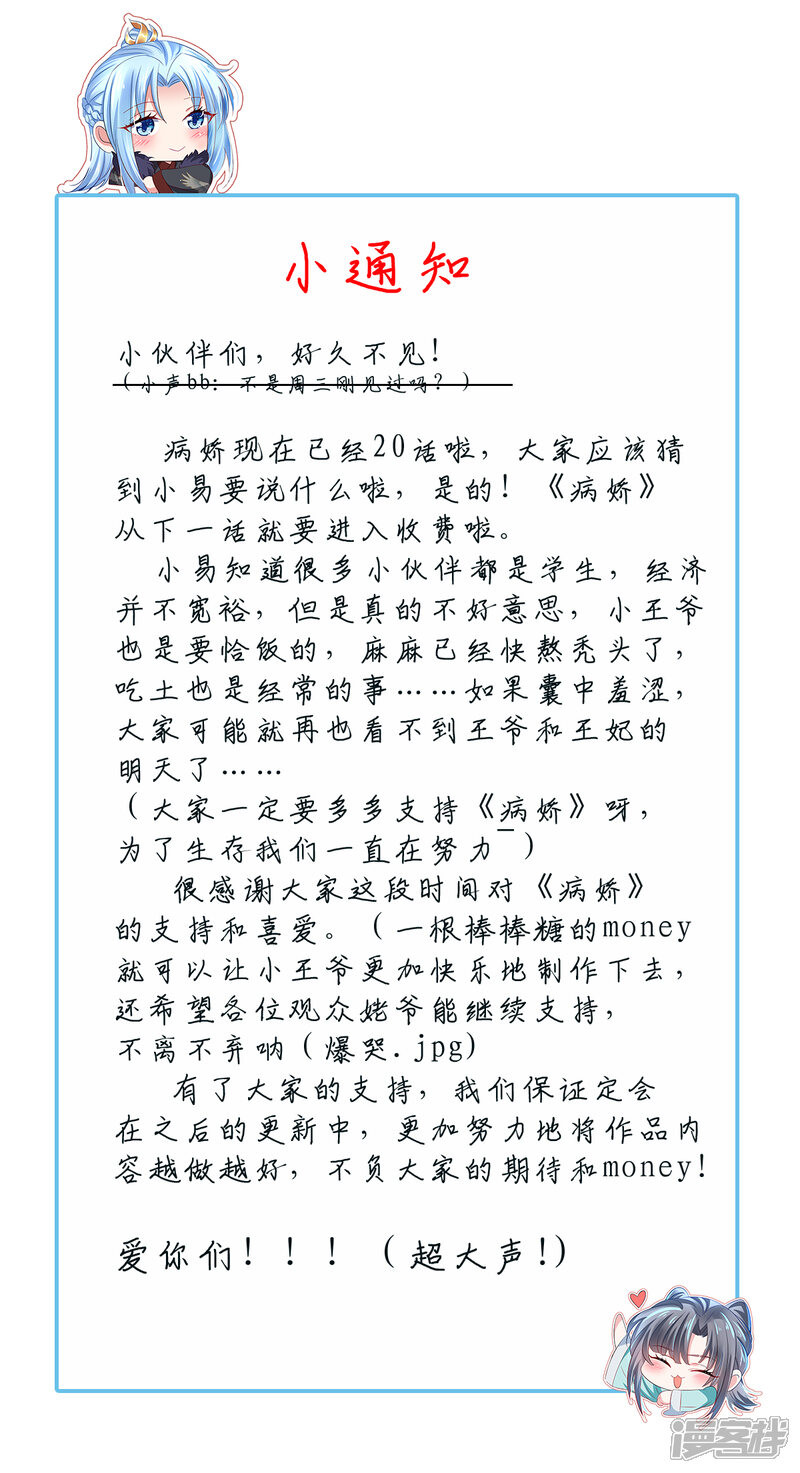 小通知
小伙伴们，好久不见！
（小声bb：不是周三刚见过吗？）
病娇现在已经20话啦，大家应该猜
到小易要说什么啦，是的！《病娇》
从下一话就要进入收费啦。
小易知道很多小伙伴都是学生，经济
并不宽裕，但是真的不好意思，小王爷
也是要恰饭的，麻麻已经快熬秃头了，
吃土也是经常的事……如果囊中羞涩，
大家可能就再也看不到王爷和王妃的
明天了……
（大家一定要多多支持《病娇》呀，
为了生存我们一直在努力¯）
很感谢大家这段时间对《病娇》
的支持和喜爱。（一根棒棒糖的money
就可以让小王爷更加快乐地制作下去，
还希望各位观众姥爷能继续支持，
不离不弃呐（爆哭.jpg)
有了大家的支持，我们保证定会
在之后的更新中，更加努力地将作品内
容越做越好，不负大家的期待和money!
爱你们！！！（超大声!)
漫客栈